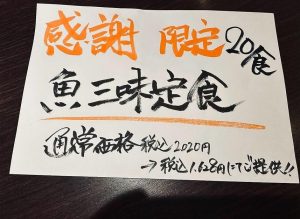 感謝 限定20食
魚三味定食
通常価格 税込2020円
→税込1.628円にてご提供!!